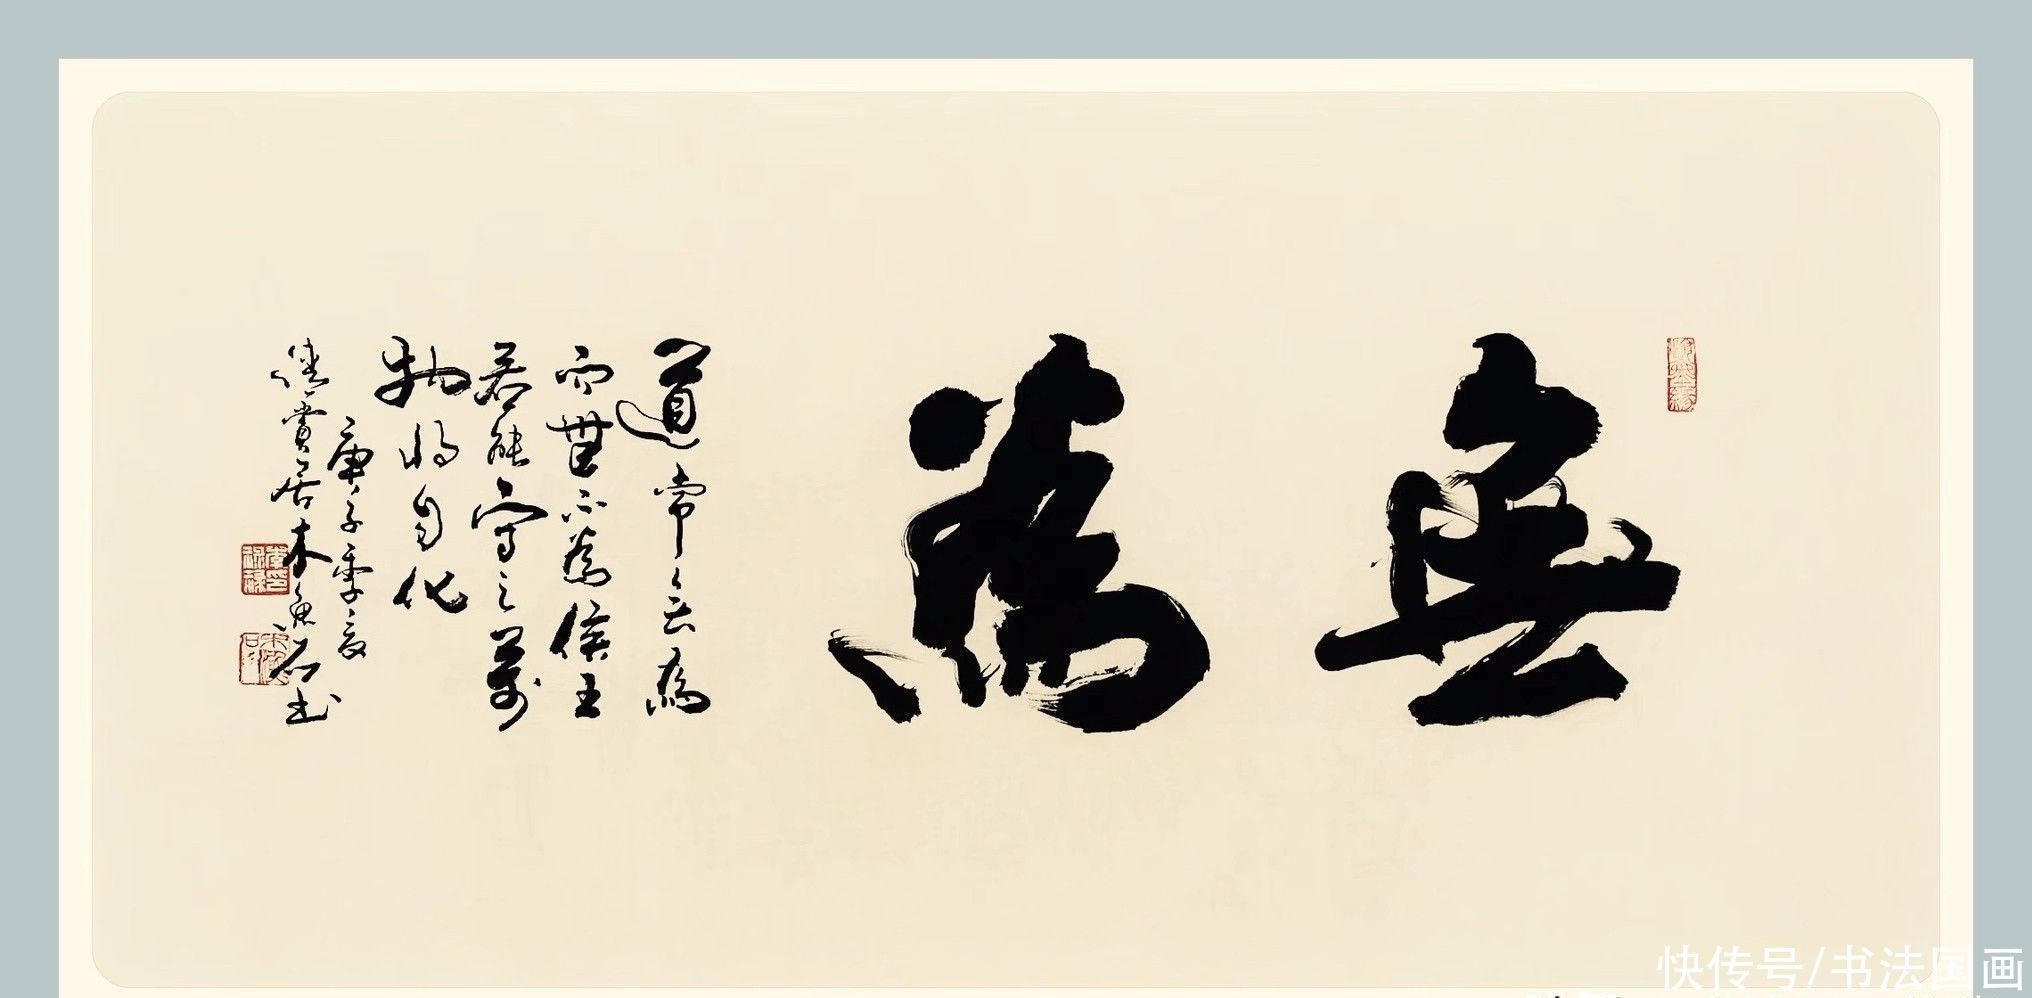 無為
道常无為
而無不為侯王
若能守之萬
物將自化
庚子季夏
賞居木魚石書
快传号/书法国画